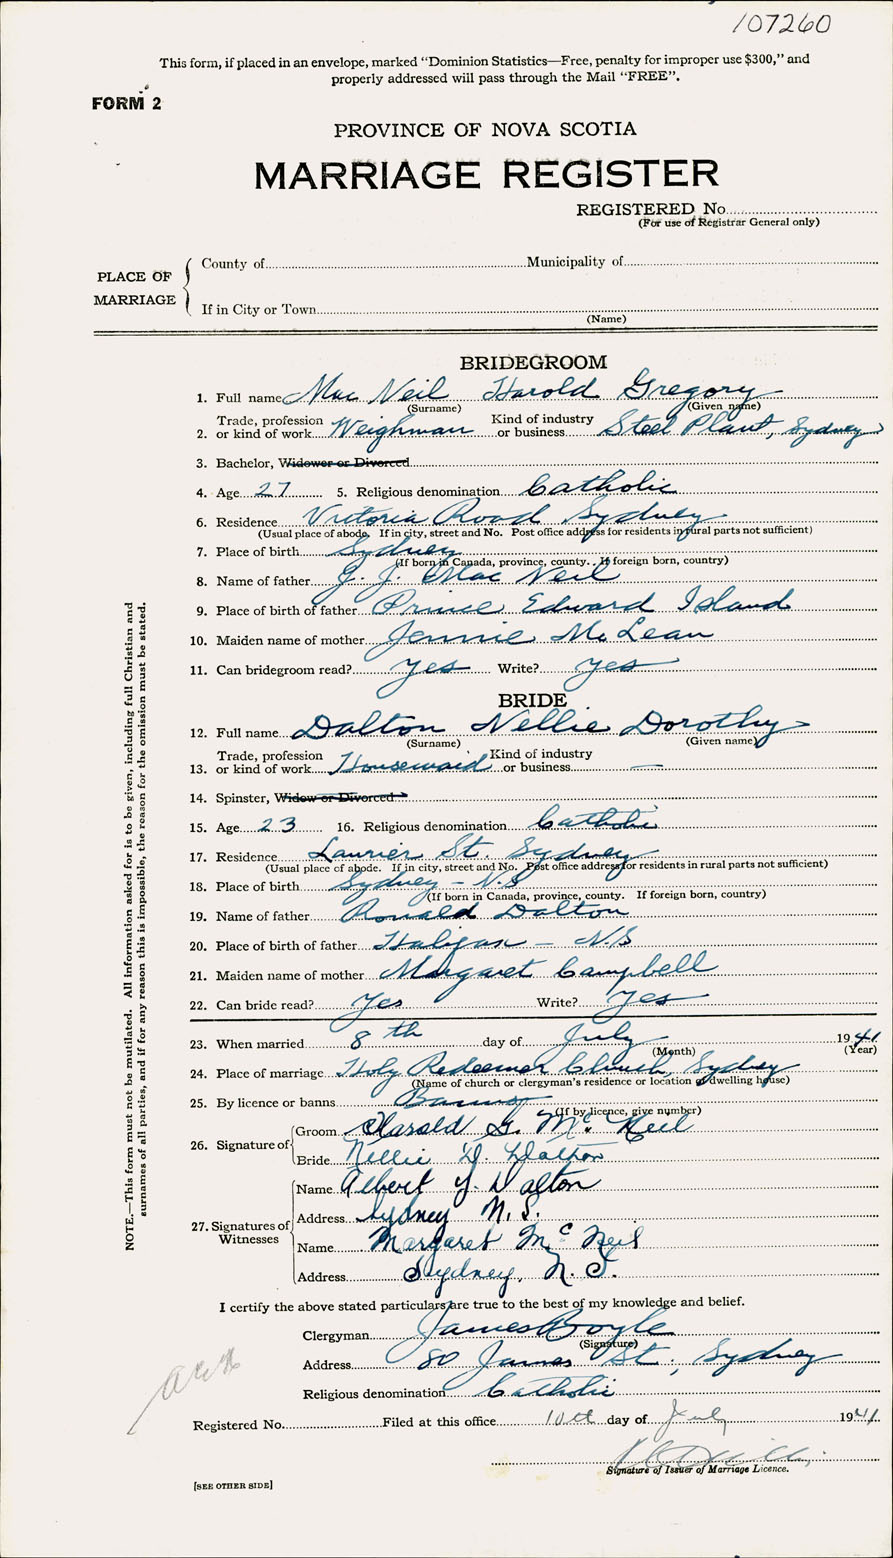 107260
This form, if placed in an envelope, marked "Dominion Statistics—Free, penalty for improper use $300," and
properly addressed will pass through the Mail "FREE".
FORM 2
PROVINCE OF NOVA SCOTIA
MARRIAGE REGISTER
REGISTERED No.
(For use of Registrar General only)
PLACE OF MARRIAGE
County of Municipality of
If in City or Town
(Name)
BRIDEGROOM
1. Full name Mac Neil Harold Gregory
(Surname) (Given name)
2. Trade, profession or kind of work Weighman Kind of industry or business Steel Plant, Sydney
3. Bachelor, Widower or Divorced
4. Age 27 5. Religious denomination Catholic
6. Residence Victoria Road Sydney
(Usual place of abode. If in city, street and No. Post office address for residents in rural parts not sufficient)
7. Place of birth Sydney
(If born in Canada, province, county. If foreign born, country)
8. Name of father J. J. Mac Neil
9. Place of birth of father Prince Edward Island
10. Maiden name of mother Jennie McLean
11. Can bridegroom read? Yes Write? Yes
BRIDE
12. Full name Dalton Nellie Dorothy
(Surname) (Given name)
13. Trade, profession or kind of work Housemaid Kind of industry or business —
14. Spinster, Widow or Divorced
15. Age 23 16. Religious denomination Catholic
17. Residence Laurier St. Sydney
(Usual place of abode. If in city, street and No. Post office address for residents in rural parts not sufficient)
18. Place of birth Sydney - N.S
(If born in Canada, province, county. If foreign born, country)
19. Name of father Ronald Dalton
20. Place of birth of father Halifax - N.S
21. Maiden name of mother Margaret Campbell
22. Can bride read? Yes Write? Yes
23. When married 8th day of July 1941
(Month) (Year)
24. Place of marriage Holy Redeemer Church, Sydney
(Name of church or clergyman's residence or location of dwelling house)
25. By licence or banns Banns
(If by licence, give number)
26. Signature of Groom Harold G. McNeil
Bride Nellie D. Dalton
27. Signatures of Witnesses
Name Albert J. Dalton
Address Sydney N.S.
Name Margaret McNeil
Address Sydney, N.S.
I certify the above stated particulars are true to the best of my knowledge and belief.
Clergyman James Boyle
(Signature)
Address 80 James St., Sydney
Religious denomination Catholic
Registered No. Filed at this office 10th day of July 1941
Signature of Issuer of Marriage Licence.
[SEE OTHER SIDE]
NOTE.—This form must not be mutilated. All information asked for is to be given, including full Christian and
surnames of all parties, and if for any reason this is impossible, the reason for the omission must be stated.